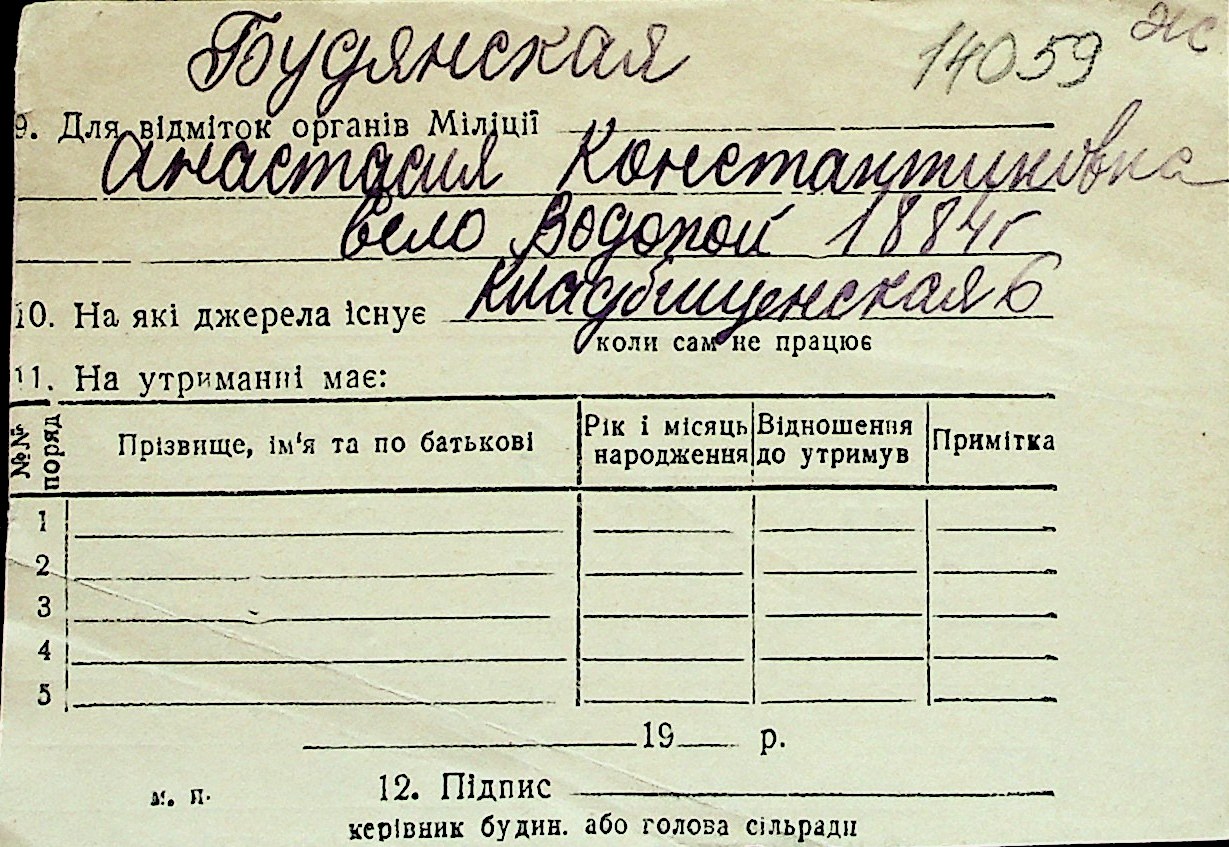 Будянская 14059 жс
9. Для відміток органів Міліції
Анастасия Константиновна
Село Водопой 1884г
10. На які джерела існує Кладбищенская 6
коли сам не працює
11. На утриманні має:
№№ поряд Прізвище, ім'я та по батькові Рік і місяць народження Відношення до утримув Примітка
1
2
3
4
5
19 р.
м. п. 12. Підпис
керівник будин. або голова сільради